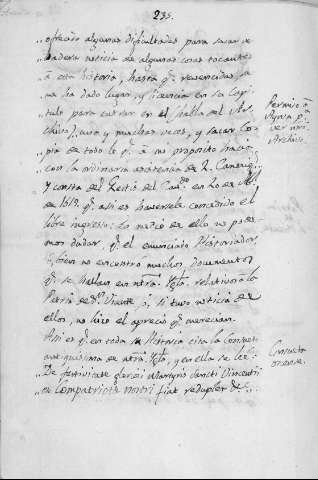 235.
„ ofrecido algunas dificultades para sacar ver
„ dadera noticia de algunas cosas tocantes
„ á esta historia, hasta q.e vencidas, se
„ me ha dado lugar, y licencia en su Capi
„ tulo para entrar en el
„ chivo, una y muchas veces, y sacar Co-
„ pia de todo lo q.e á mi proposito hacia
„ con la ordinaria asistencia de 2. Canonig.
Y consta del Restro del Cav.do en 20 de
de 1613. q.e asi es haversele concedido el
libre ingreso: Lo mismo en ello no pode
mos dudar, q.e el enunciado Historiador,
ó bien no encontró muchos Documentos
q.e se hallan en ntra. Ygl.a relativos á la
Patria de S.n Vicente; ó, si tuvo noticia de
ellos, no hizo el aprecio q.e merecian.
Asi es q.e en toda su Historia cita la Consueta
antiquisima de ntra. Ygl.a, y en ella se lee:
De festivitate gloriosi Martyris Sancti Vincentii
en Compatriote nostri fiat redupler &c.
Permiso á
Aynsa p.a
ver ntro
Archivo.
Consueta